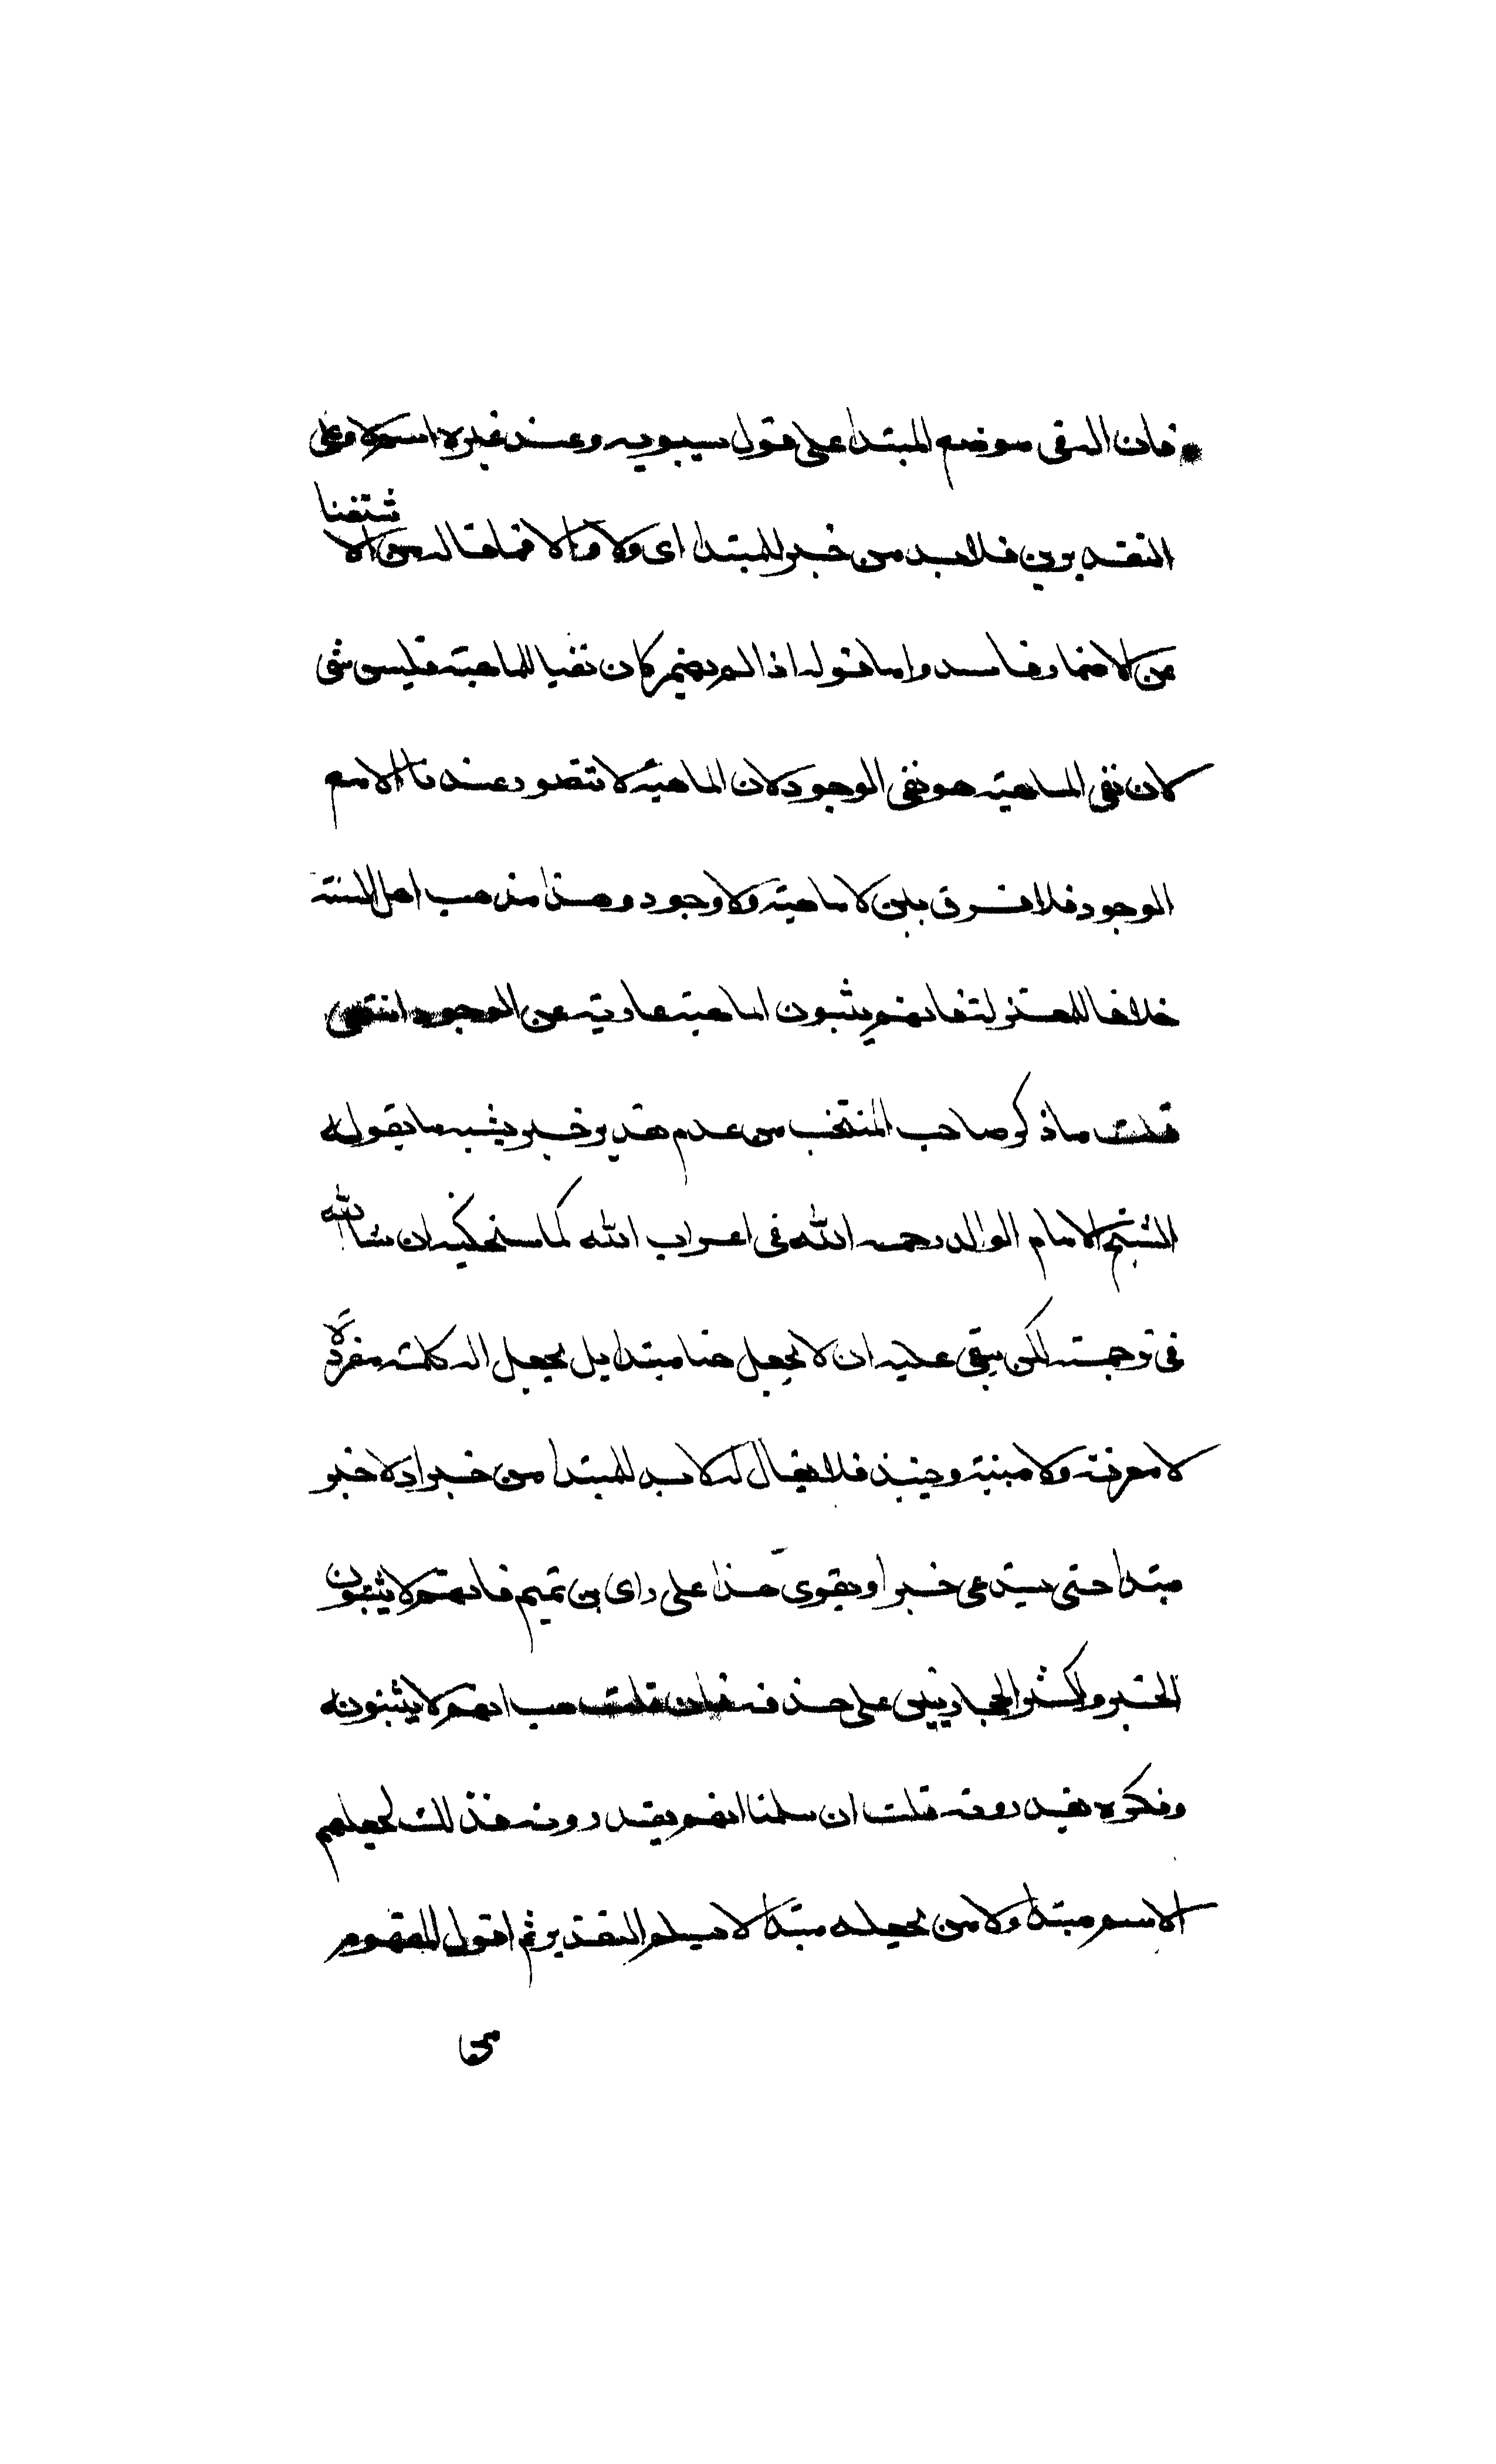 فان اله فى موضع المبتدا على قول سيبويه وعند غيره اسم لا وعلى
التقديرين فلابد من خبر للمبتدا اى ولا فما قاله من الاستغنا
عن الاضمار فاسد واما قوله اذا لم يضمر كان نفيا للماهية فليس شى
لان نفى الماهية هو نفى الوجود لان الماهية لا تتصور عندنا الا مع
الوجود فلا فرق بين لا ماهية ولا وجود وهذا مذهب اهل السنة
خلافا للمعتزلة فانهم يثبتون الماهية عارية عن الوجود انتهى
قلت ماذكر صاحب المنتخب من عدم تقدير خبر يشبه ما يقوله
الشيخ الامام الوالد رحمه الله فى اعراب الله كما سنحكيه ان شا الله
فى ترجمته لكن يبقى عليه ان لا يجعل هنا مبتدا بل يجعل اله كلمة مفردة لا
لا معرفة ولا مبنية وحينئذ فلا يقال له لابد للمبتدا من خبر اذ لا خبر
مبتدا حتى يستدعى خبرا ويقوى هذا على راى بنى تميم فانهم لا يثبتون
الخبر واكثر الحجازيين على حذفه فان قلت هب انهم لا يثبتونه
وذكره يقدرونه قلت ان سلمنا انهم يقدرونه فذلك لجعلهم
الاسم مبتدا ولا من يجعله مبتدا لا يسلم التقدير ثم اقول المفهوم